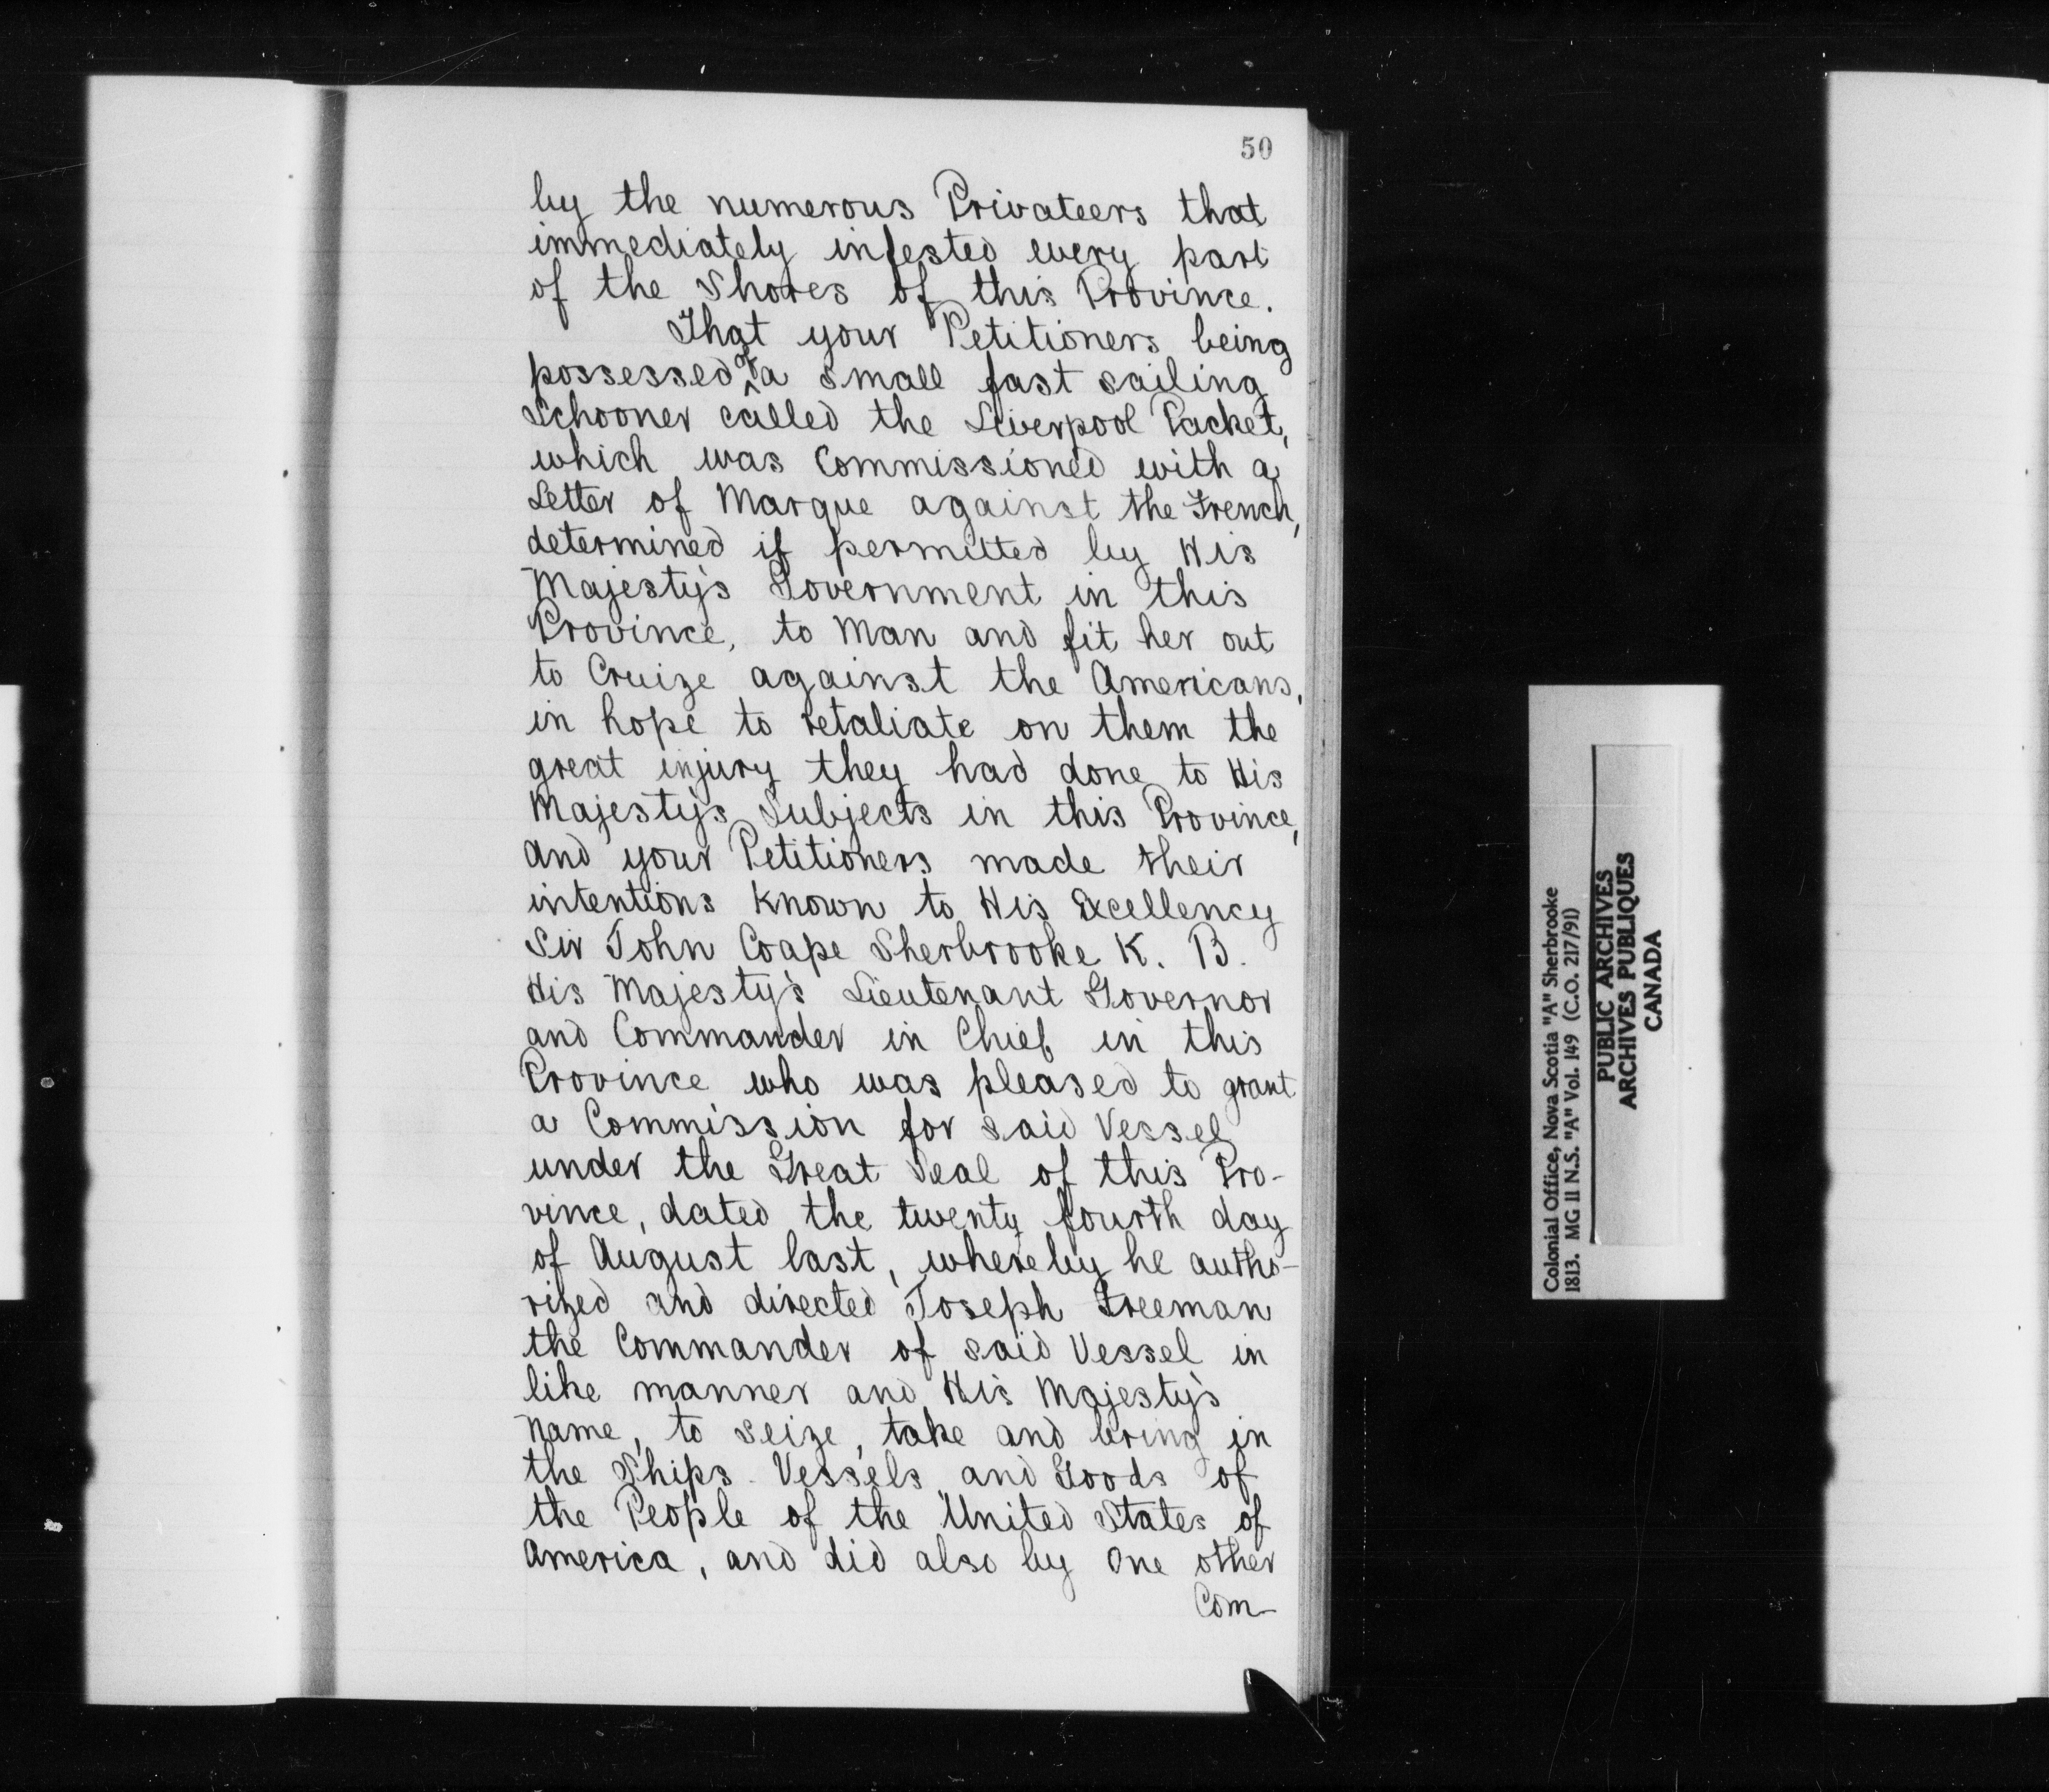 50
by the numerous Privateers that
immediately infested every part
of the Shores of this Province.
That your Petitioners being
possessed of a small fast sailing
Schooner called the Liverpool Packet,
which was Commissioned with a
Letter of Marque against the French,
determined if permitted by His
Majesty's Government in this
Province, to Man and fit her out
to Cruize against the Americans,
in hope to retaliate on them the
great injury they had done to His
Majesty's Subjects in this Province,
and your Petitioners made their
intentions known to His Excellency
Sir John Coape Sherbrooke K. B.
His Majesty's Lieutenant Governor
and Commander in Chief in this
Province who was pleased to grant
a Commission for said Vessel
under the Great Seal of this Pro-
vince, dated the twenty fourth day
of August last, whereby he autho-
rized and directed Joseph Freeman
the Commander of said Vessel in
like manner and His Majesty's
Name, to seize, take and bring in
the Ships. Vessels and Goods of
the People of the United States of
America, and did also by One other
Com-
Colonial Office, Nova Scotia "A" Sherbrooke
1813. MG 11 N.S. "A" Vol. 149 (C.O. 217/91)
PUBLIC ARCHIVES
ARCHIVES PUBLIQUES
CANADA